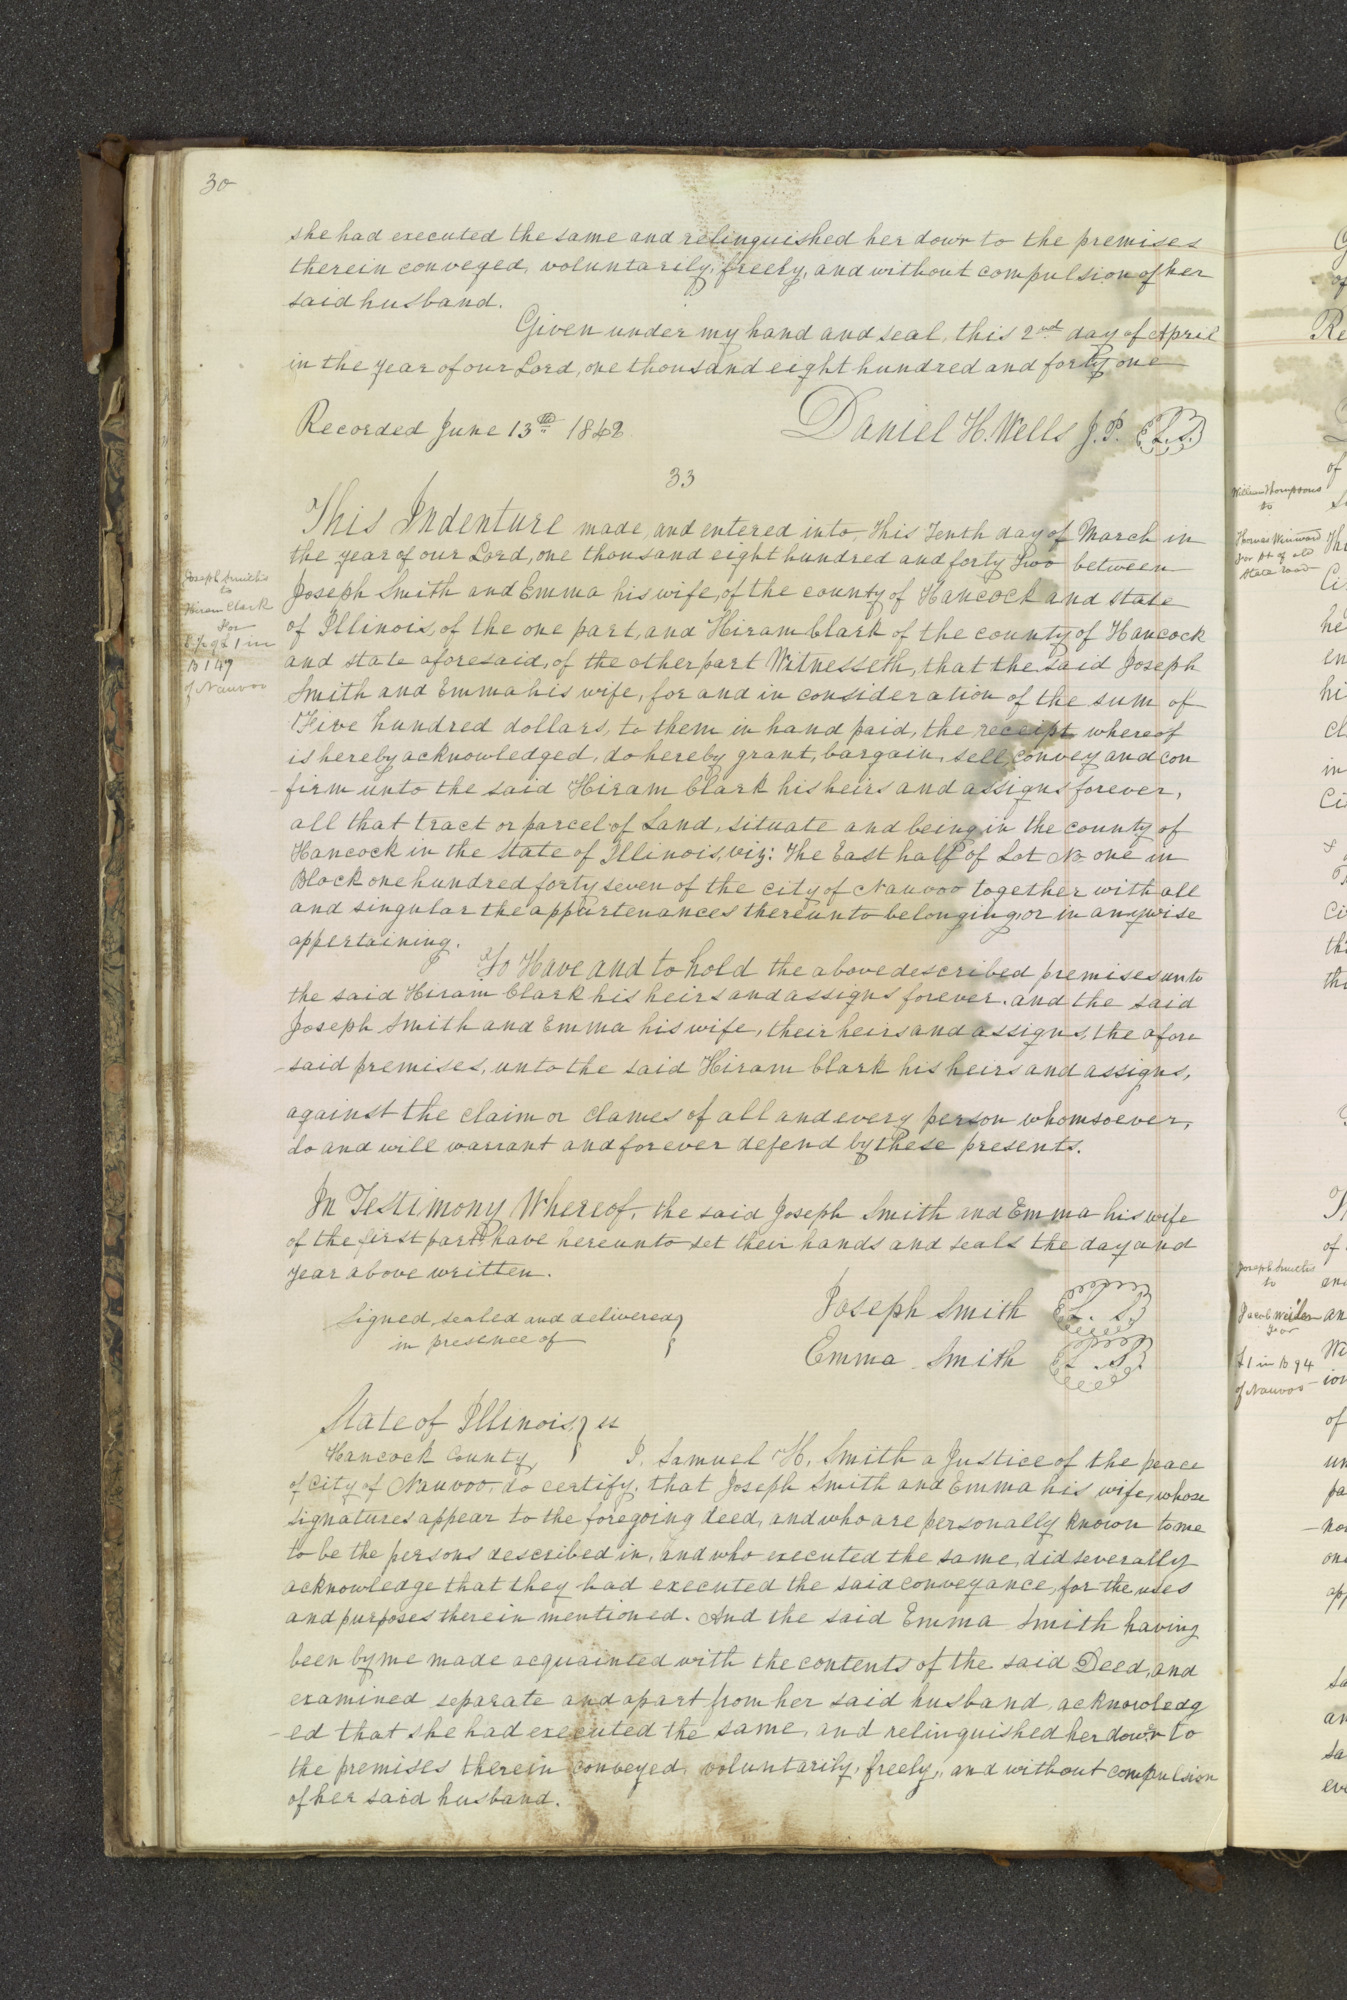 30
she had executed the same and relinquished her dowr to the premises
therein conveyed, voluntarily, freely, and without compulsion of her
said husband.
Given under my hand and seal, this 2nd day of April
in the year of our Lord, one thousand eight hundred and forty one
Recorded June 13th 1842 Daniel H. Wells J.P. L.S.
33
This Indenture made, and entered into, this Tenth day of March in
the year of our Lord, one thousand eight hundred and forty Two between
Joseph Smith and Emma his wife, of the county of Hancock and state
of Illinois, of the one part, and Hiram Clark of the county of Hancock
and state aforesaid, of the other part Witnesseth, that the said Joseph
Smith and Emma his wife, for and in consideration of the sum of
Five hundred dollars, to them in hand paid, the receipt whereof
is hereby acknowledged, do hereby grant, bargain, sell, convey and con
-firm unto the said Hiram Clark his heirs and assigns forever,
all that tract or parcel of Land, situate and being in the county of
Hancock in the State of Illinois, viz: The East half of Lot No one in
Block one hundred forty seven of the city of Nauvoo together with all
and singular the appurtenances thereunto belonging, or in anywise
appertaining.
To Have and to hold the above described premises unto
the said Hiram Clark his heirs and assigns forever. and the said
Joseph Smith and Emma his wife, their heirs and assigns, the afore
-said premises, unto the said Hiram Clark his heirs and assigns,
against the claim or clames of all and every person whomsoever,
do and will warrant and forever defend by these presents.
In Testimony Whereof, the said Joseph Smith and Emma his wife
of the first part have hereunto set their hands and seals the day and
year above written.
Signed, sealed and delivered
in presence of
Joseph Smith L. S.
Emma Smith L. S.
State of Illinois, ss
Hancock County, I, Samuel H. Smith a Justice of the peace
of City of Nauvoo, do certify, that Joseph Smith and Emma his wife, whose
signatures appear to the foregoing deed, and who are personally known to me
to be the persons described in, and who executed the same, did severally
acknowledge that they had executed the said conveyance, for the uses
and purposes therein mentioned. And the said Emma Smith having
been by me made acquainted with the contents of the said Deed, and
examined separate and apart from her said husband, acknowledg
-ed that she had executed the same, and relinquished her dowr to
the premises therein conveyed, voluntarily, freely, and without compulsion
of her said husband.
Joseph Smiths
to
Hiram Clark
For
1 in
B 147
of Nauvoo
William Thompsons
to
Thomas
for pt of old
State road
Joseph Smiths
to
Jacob
For
L 1 in B 94
of Nauvoo